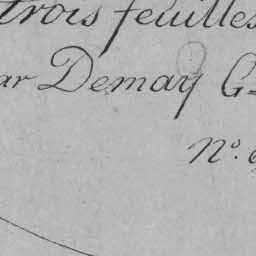 trois feuilles
ar Demay G
N°.